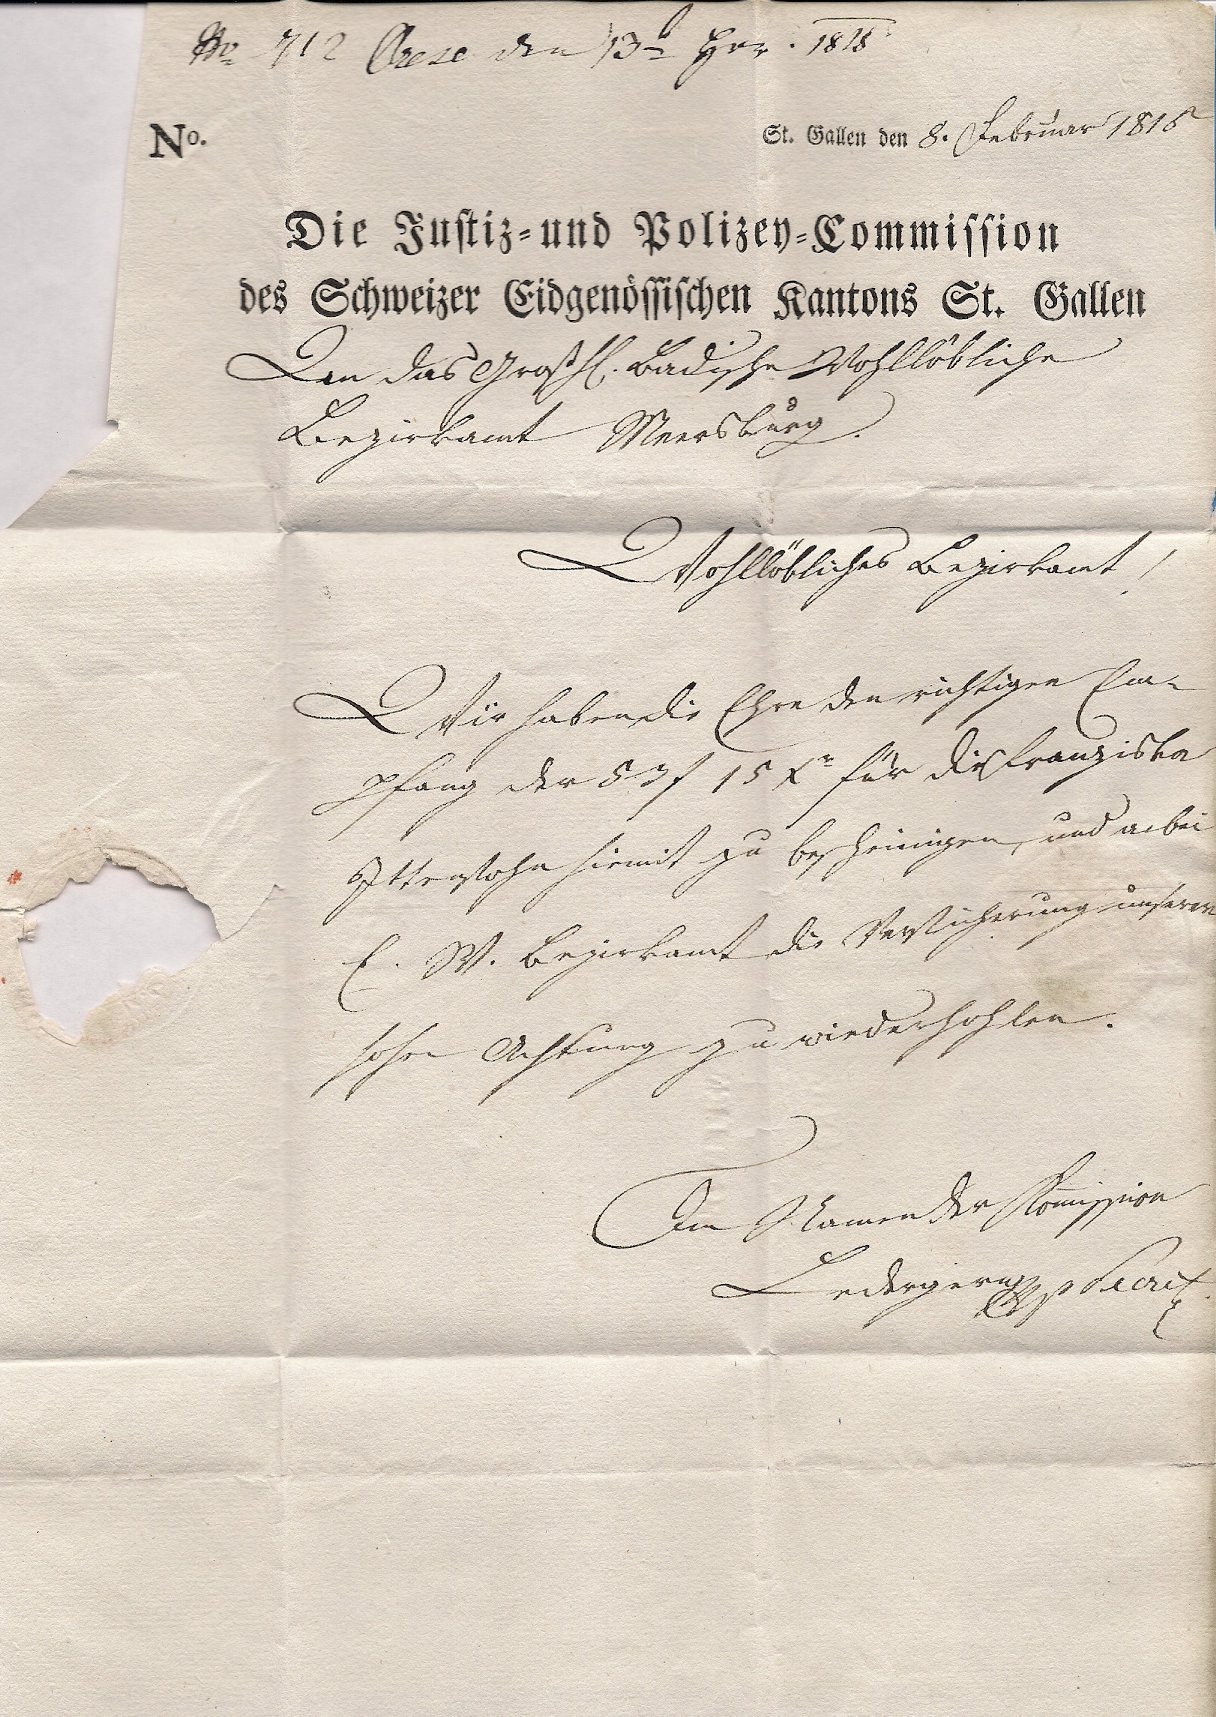 No 712 den 13t Hor. 1818
No. St. Gallen den 8. Februar 1818
Die Justiz- und Polizey-Commission
des Schweizer Eidgenössischen Kantons St. Gallen
An das Großh. Badische Wohllöbliche
Bezirkamt Meersburg.
Wohllöbliches Bezirkamt!
Wir haben die Ehre den richtigen Em-
pfang der 53 f 15 Xr für die Franziska
hiemit zu bescheinigen, und anbei
E. W. Bezirkamt die Versicherung unserer
hohen Achtung zu wiederhohlen.
Im Namen der Kommission
Ledergerw Secret